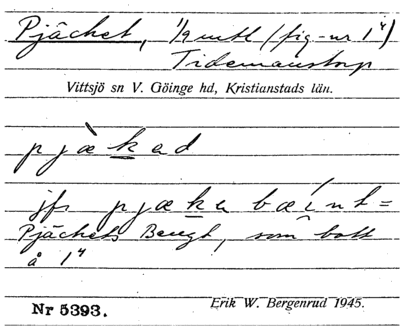 Pjäcket, 1/9 mtl (fig-nr 1⁴)
Tidemanstorp
Vittsjö sn V. Göinge hd, Kristianstads län.
pjàkad
jfr pjæka bæint =
Pjäckets Bengt, som bott
å 1⁴
Nr 5393.
Erik W. Bergenrud 1945.